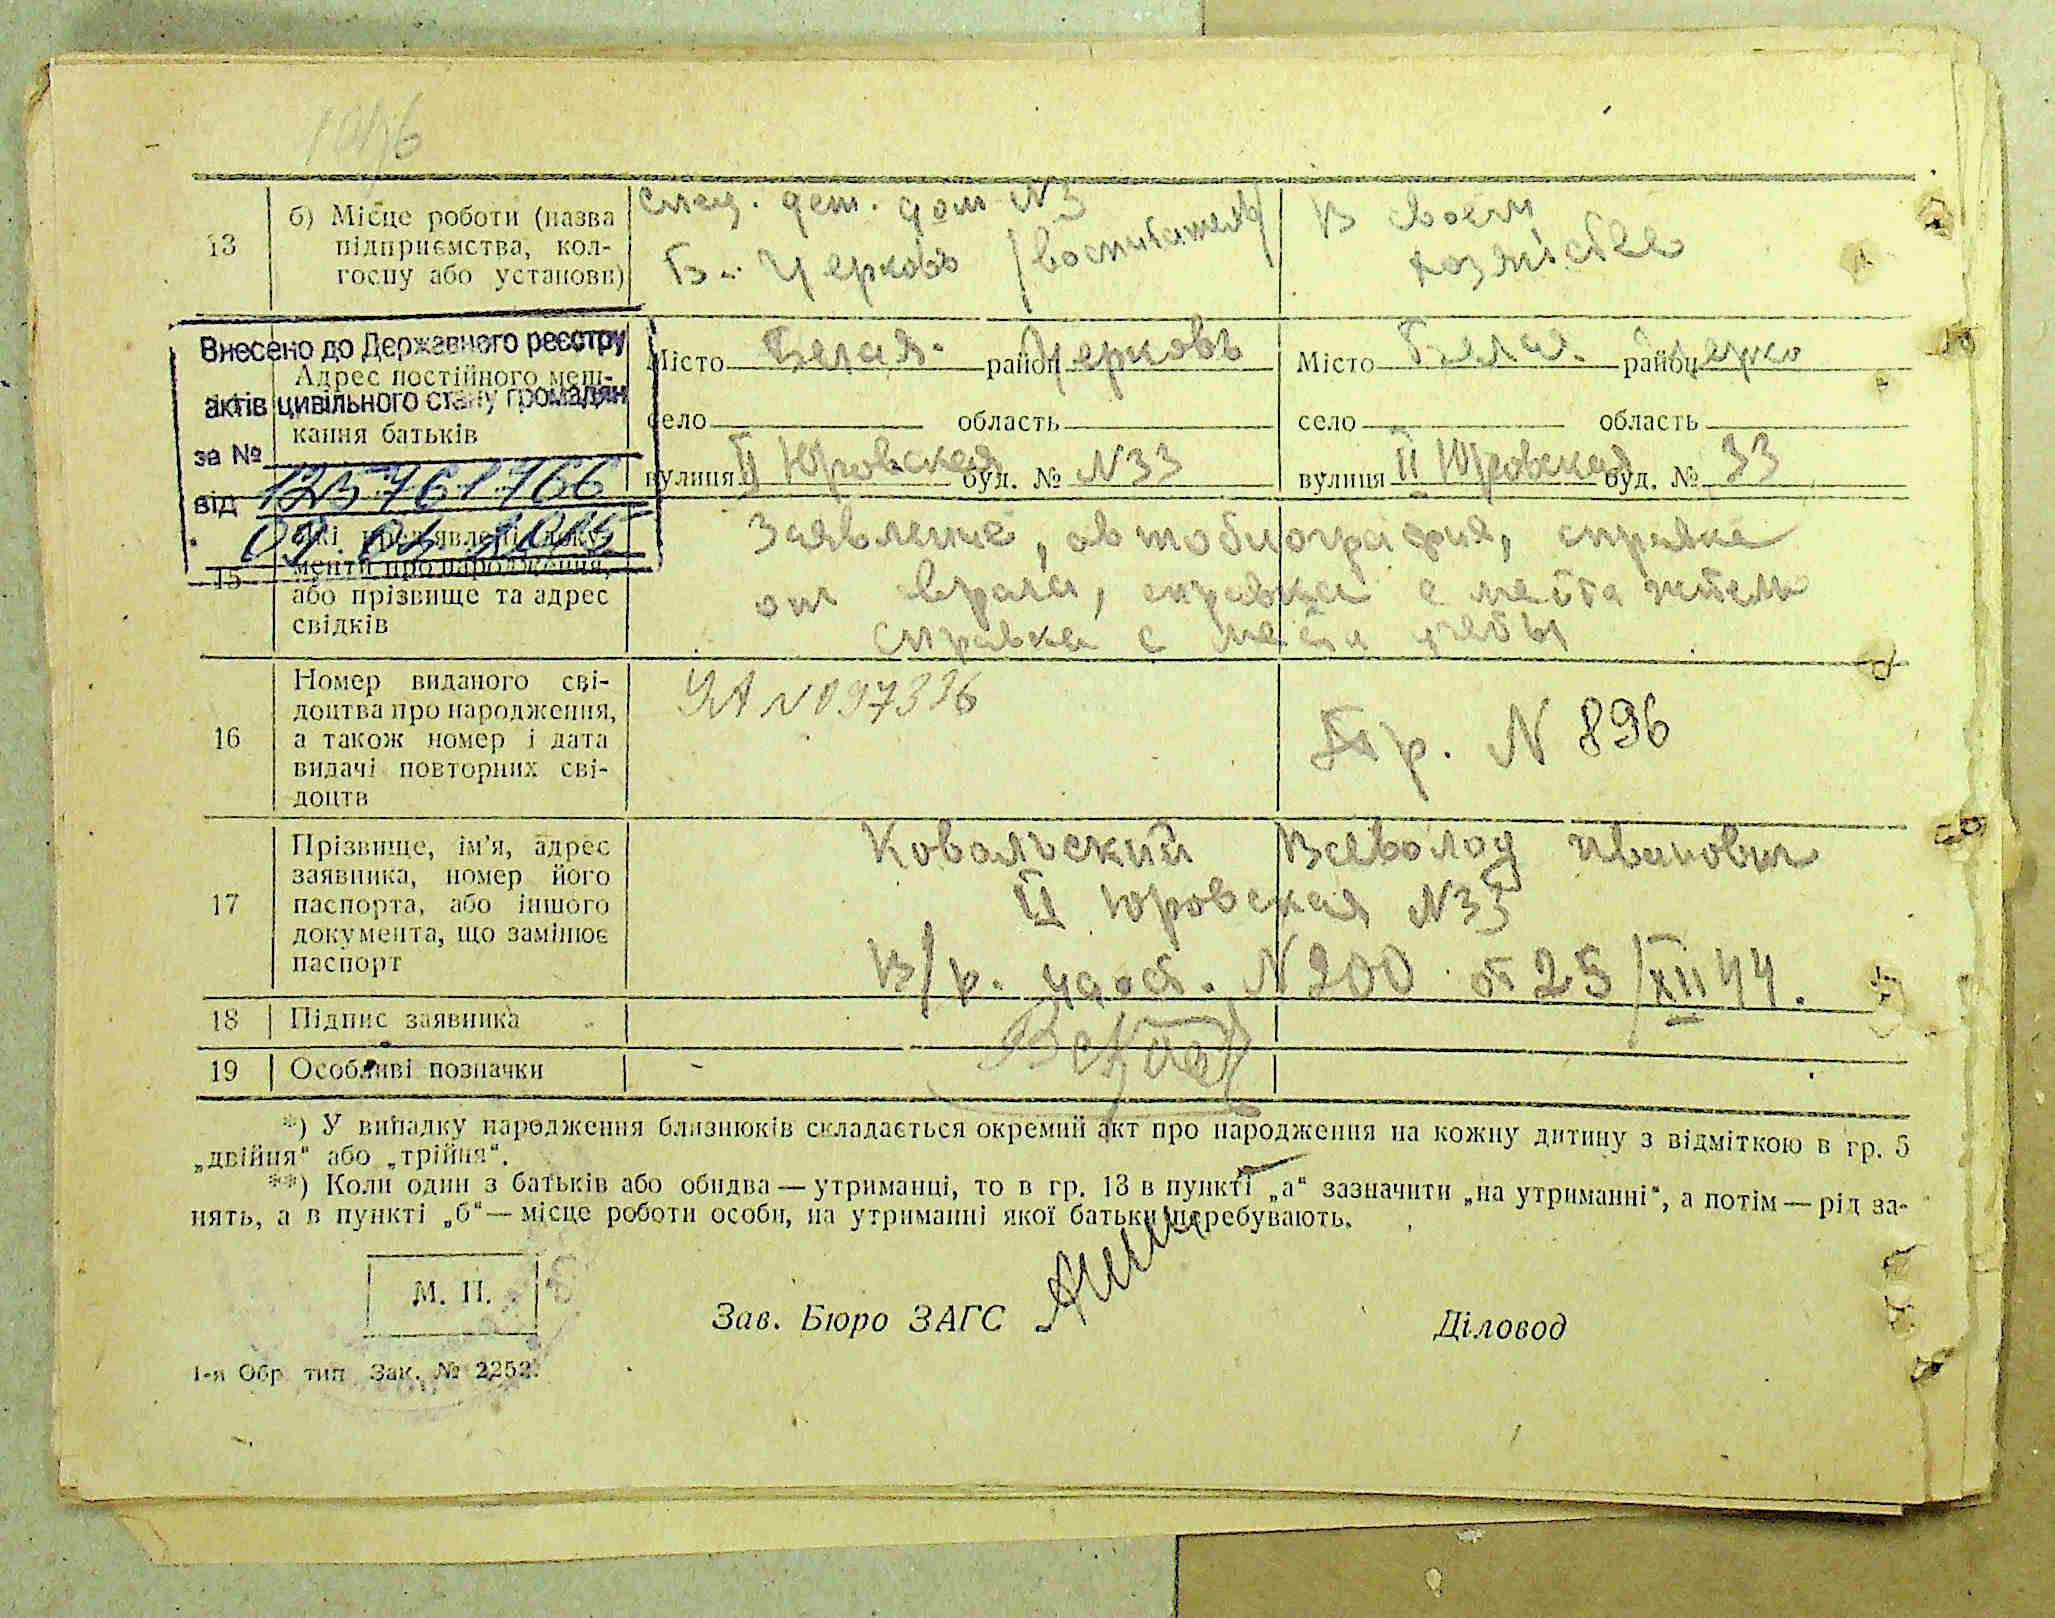 1046
13
б) Місце роботи (назва
підприємства, кол-
госпу або установи)
Спец. дет. дом N3
Б. Церковь /воспитатель/
В своем
хозяйстве
Внесено до Державного реєстру
актів цивільного стану громадян
за №
від
Адрес постійного меш-
кання батьків
Місто Белая район Церковь
село область
вулиця II Юровская буд. № N33
Місто Белая район Церко
село область
вулиця II Юровская буд. № 33
15
менти про народження,
або прізвище та адрес
свідків
Заявление, автобиография, справка
от врача, справка с места жительс
справка с места учебы
16
Номер виданого сві-
доцтва про народження,
а також номер і дата
видачі повторних сві-
доцтв
ЯА N 097336
Бр. N 896
17
Прізвище, ім'я, адрес
заявника, номер його
паспорта, або іншого
документа, що замінює
паспорт
Ковальский Всеволод Иванович
II Юровская N33
N 200 от 25/XII 44.
18
Підпис заявника
19
Особливі позначки
*) У випадку народження близнюків складається окремий акт про народження на кожну дитину з відміткою в гр. 5
„двійня“ або „трійня“.
**) Коли один з батьків або обидва — утриманці, то в гр. 13 в пункті „а“ зазначити „на утриманні“, а потім — рід за-
нять, а в пункті „б“ — місце роботи особи, на утриманні якої батьки перебувають.
М. П.
Зав. Бюро ЗАГС
Діловод
1-я Обр тип Зак. № 2252.